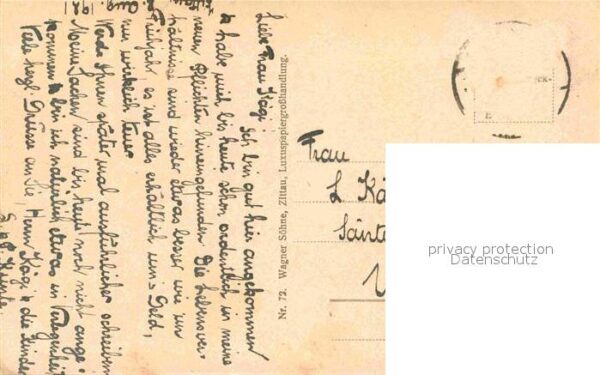 Liebe Frau Kägi!
Ich bin gut hier angekommen
& hab mich bis heute schon ordentlich in meine
neuen Pflichten hineingefunden. Die Lebensver-
hältnisse sind wieder etwas besser wie im
Frühjahr, es ist alles erhältlich um's Geld,
nur wirklich teuer.
Werde Ihnen später mal ausführlicher schreiben
Meine Sachen sind bis heute noch nicht ange-
kommen & bin ich natürlich etwas in Verlegenheit
Viele herzl. Grüsse an Sie, Herrn Kägi & die Kinder
Nr. 72. Wagner Söhne, Zittau, Luxuspapiergroßhandlung.
Frau
L Kä
Sänt
privacy protection
Datenschutz